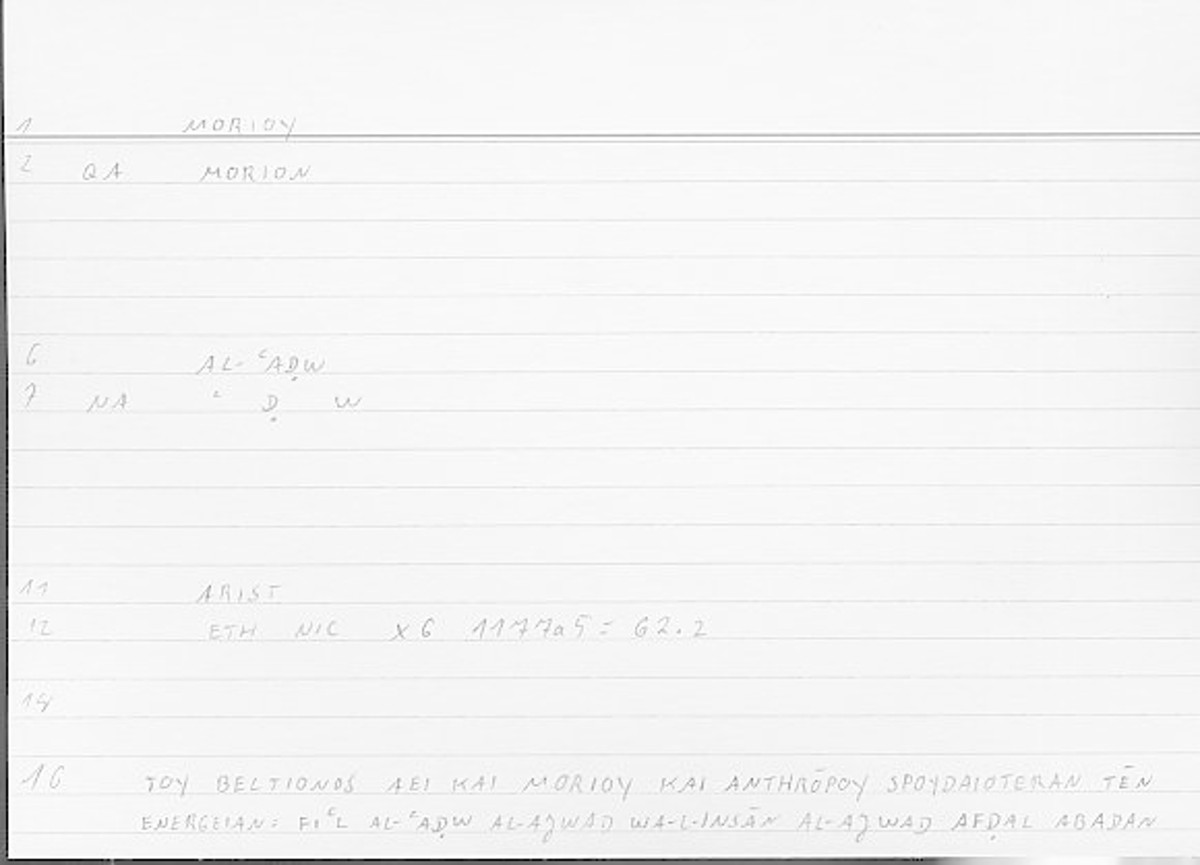 1 MORIOY
2 QA MORION
6 AL-ʿAḌW
7 NA ʿ Ḍ W
11 ARIST
12 ETH NIC X 6 1177a5 = 62.2
14
16 TOY BELTIONOS AEI KAI MORIOY KAI ANTHRŌPOY SPOYDAIOTERAN TĒN
ENERGEIAN: FIʿL AL-ʿAḌW AL-AJWAD WA-L-INSĀN AL-AJWAD AFḌAL ABADAN